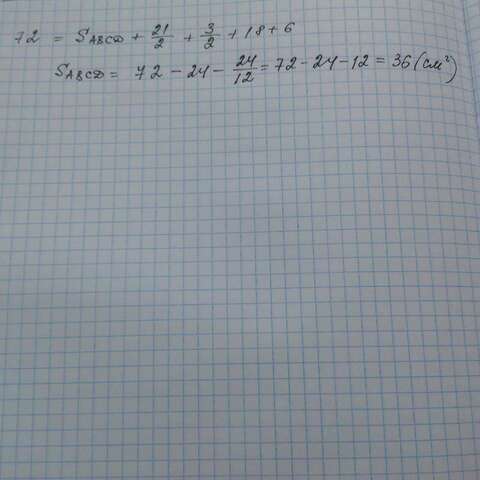 72 = SABCD + 21/2 + 3/2 + 18 + 6
SABCD = 72 - 24 - 24/12 = 72 - 24 - 12 = 36 (см²)